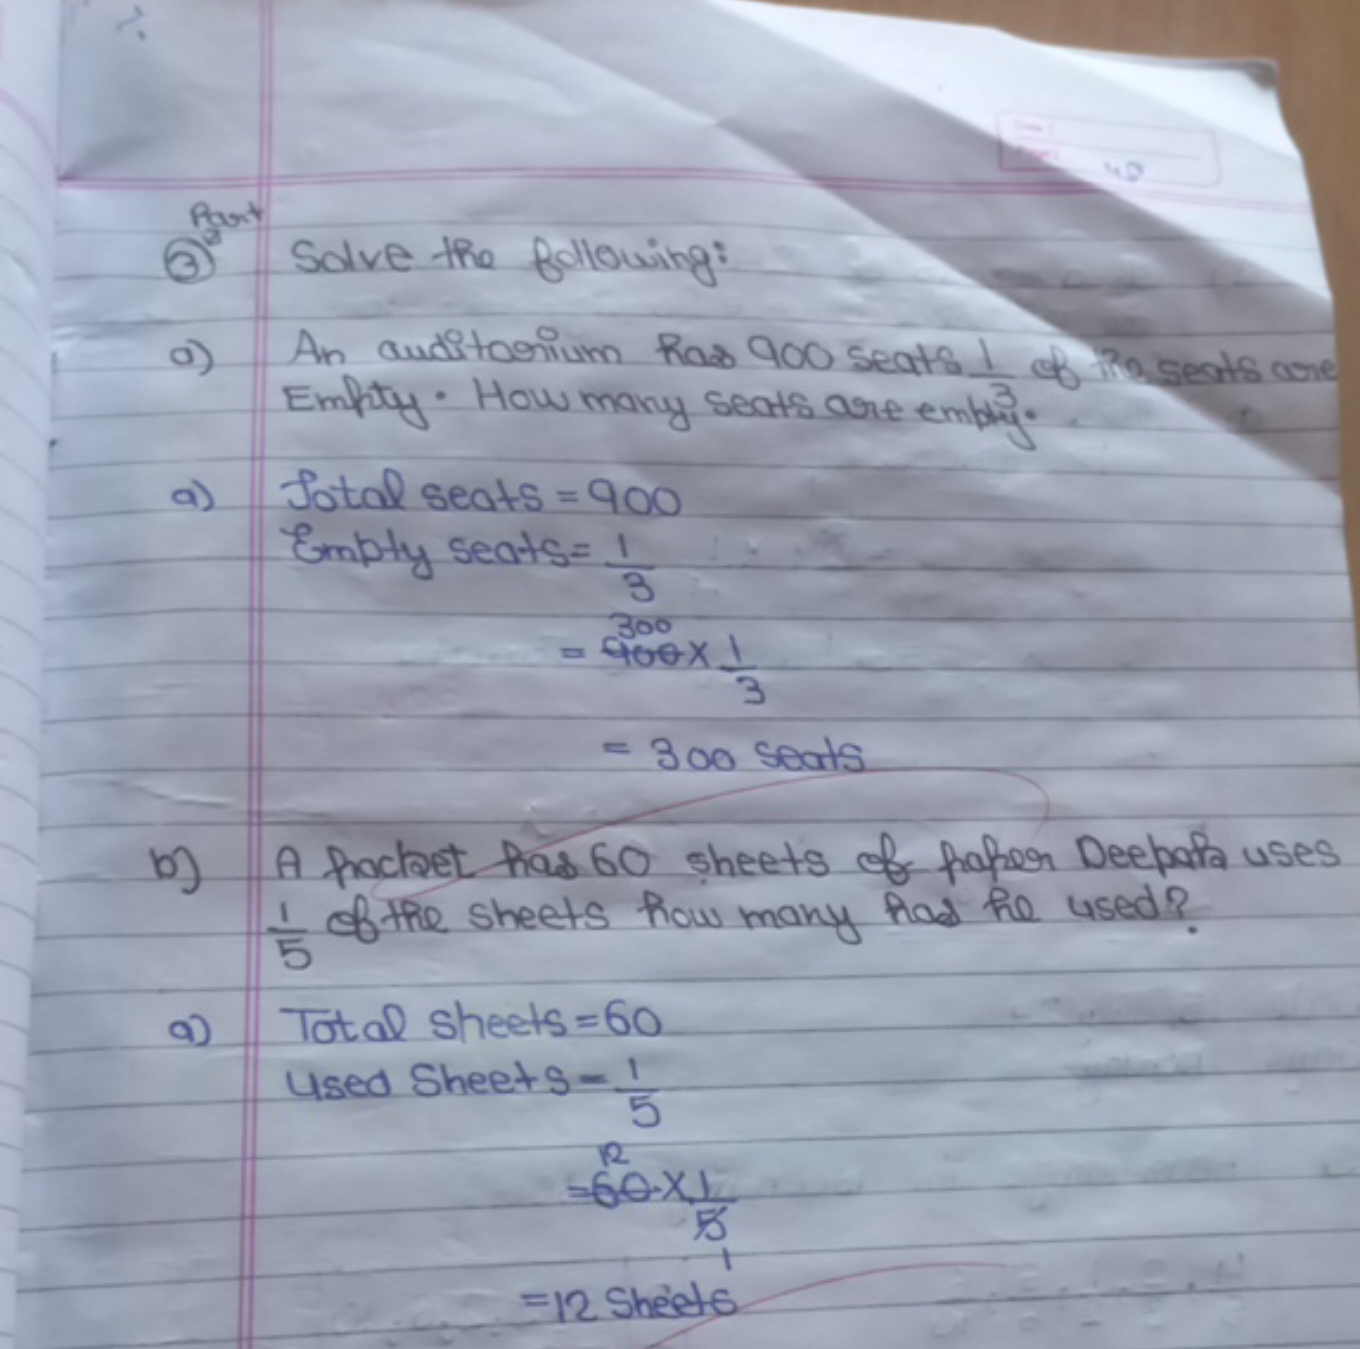 Part
③ Solve the following:
a) An auditorium has 900 seats 1/3 of the seats are
Empty. How many seats are empty.
a) Total seats = 900
Empty seats = 1/3
300
= 900 × 1/3
= 300 seats
b) A packet has 60 sheets of paper Deepak uses
1/5 of the sheets how many has he used?
a) Total sheets = 60
Used Sheets = 1/5
12
= 60 × 1/5
1
= 12 Sheets